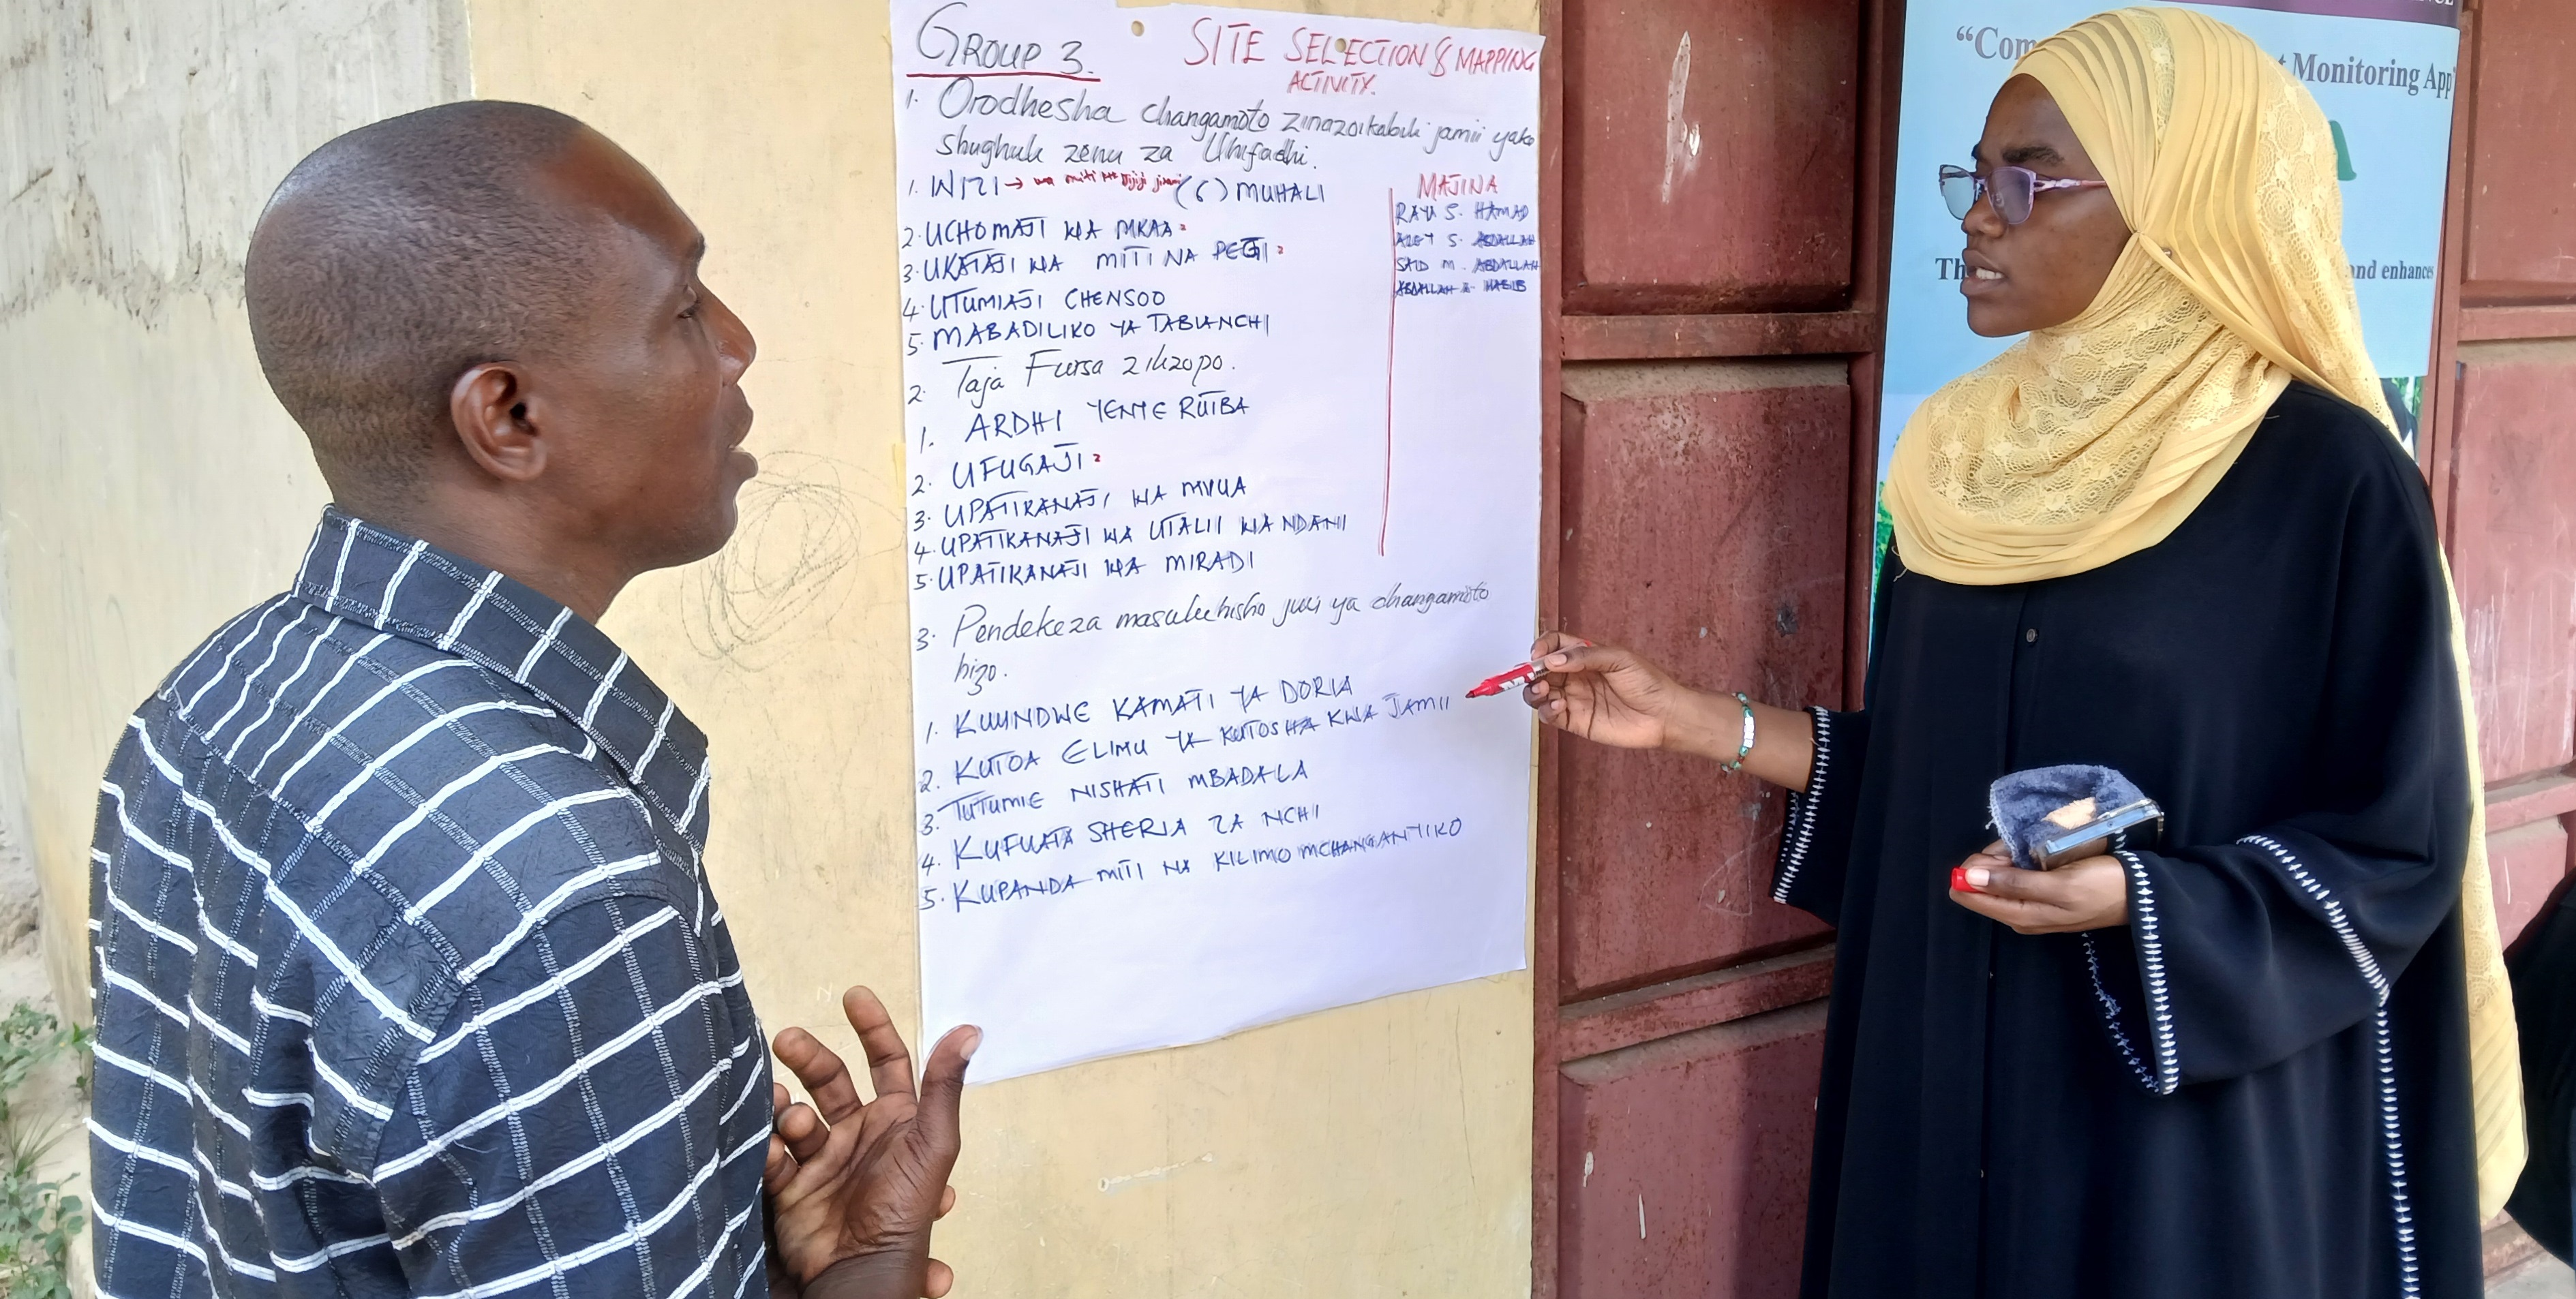 GROUP 3.
SITE SELECTION & MAPPING
ACTIVITY.
1. Orodhesha changamoto zinazoikabili jamii yako
shughuli zenu za Uhifadhi.
1. WIZI → wa miti (6) MUHALI
2. UCHOMAJI WA MKAA
3. UKATAJI WA MITI NA
4. UTUMIAJI CHENSOO
5. MABADILIKO YA TABIANCHI
2. Taja Fursa zilizopo.
1. ARDHI YENYE RUTBA
2. UFUGAJI
3. UPATIKANAJI WA MVUA
4. UPATIKANAJI WA UTALII WA NDANI
5. UPATIKANAJI WA MIRADI
3. Pendekeza masuluhisho juu ya changamoto
hizo.
1. KUUNDWE KAMATI YA DORIA
2. KUTOA ELIMU YA KUTOSHA KWA JAMII
3. TUTUMIE NISHATI MBADALA
4. KUFUATA SHERIA ZA NCHI
5. KUPANDA MITI NA KILIMO MCHANGANYIKO
MAJINA
RAYA S. HAMAD
S. ABDALLAH
SAID M. ABDALLAH
ABDALLAH HABIB
"Com
Monitoring App"
Th
and enhances